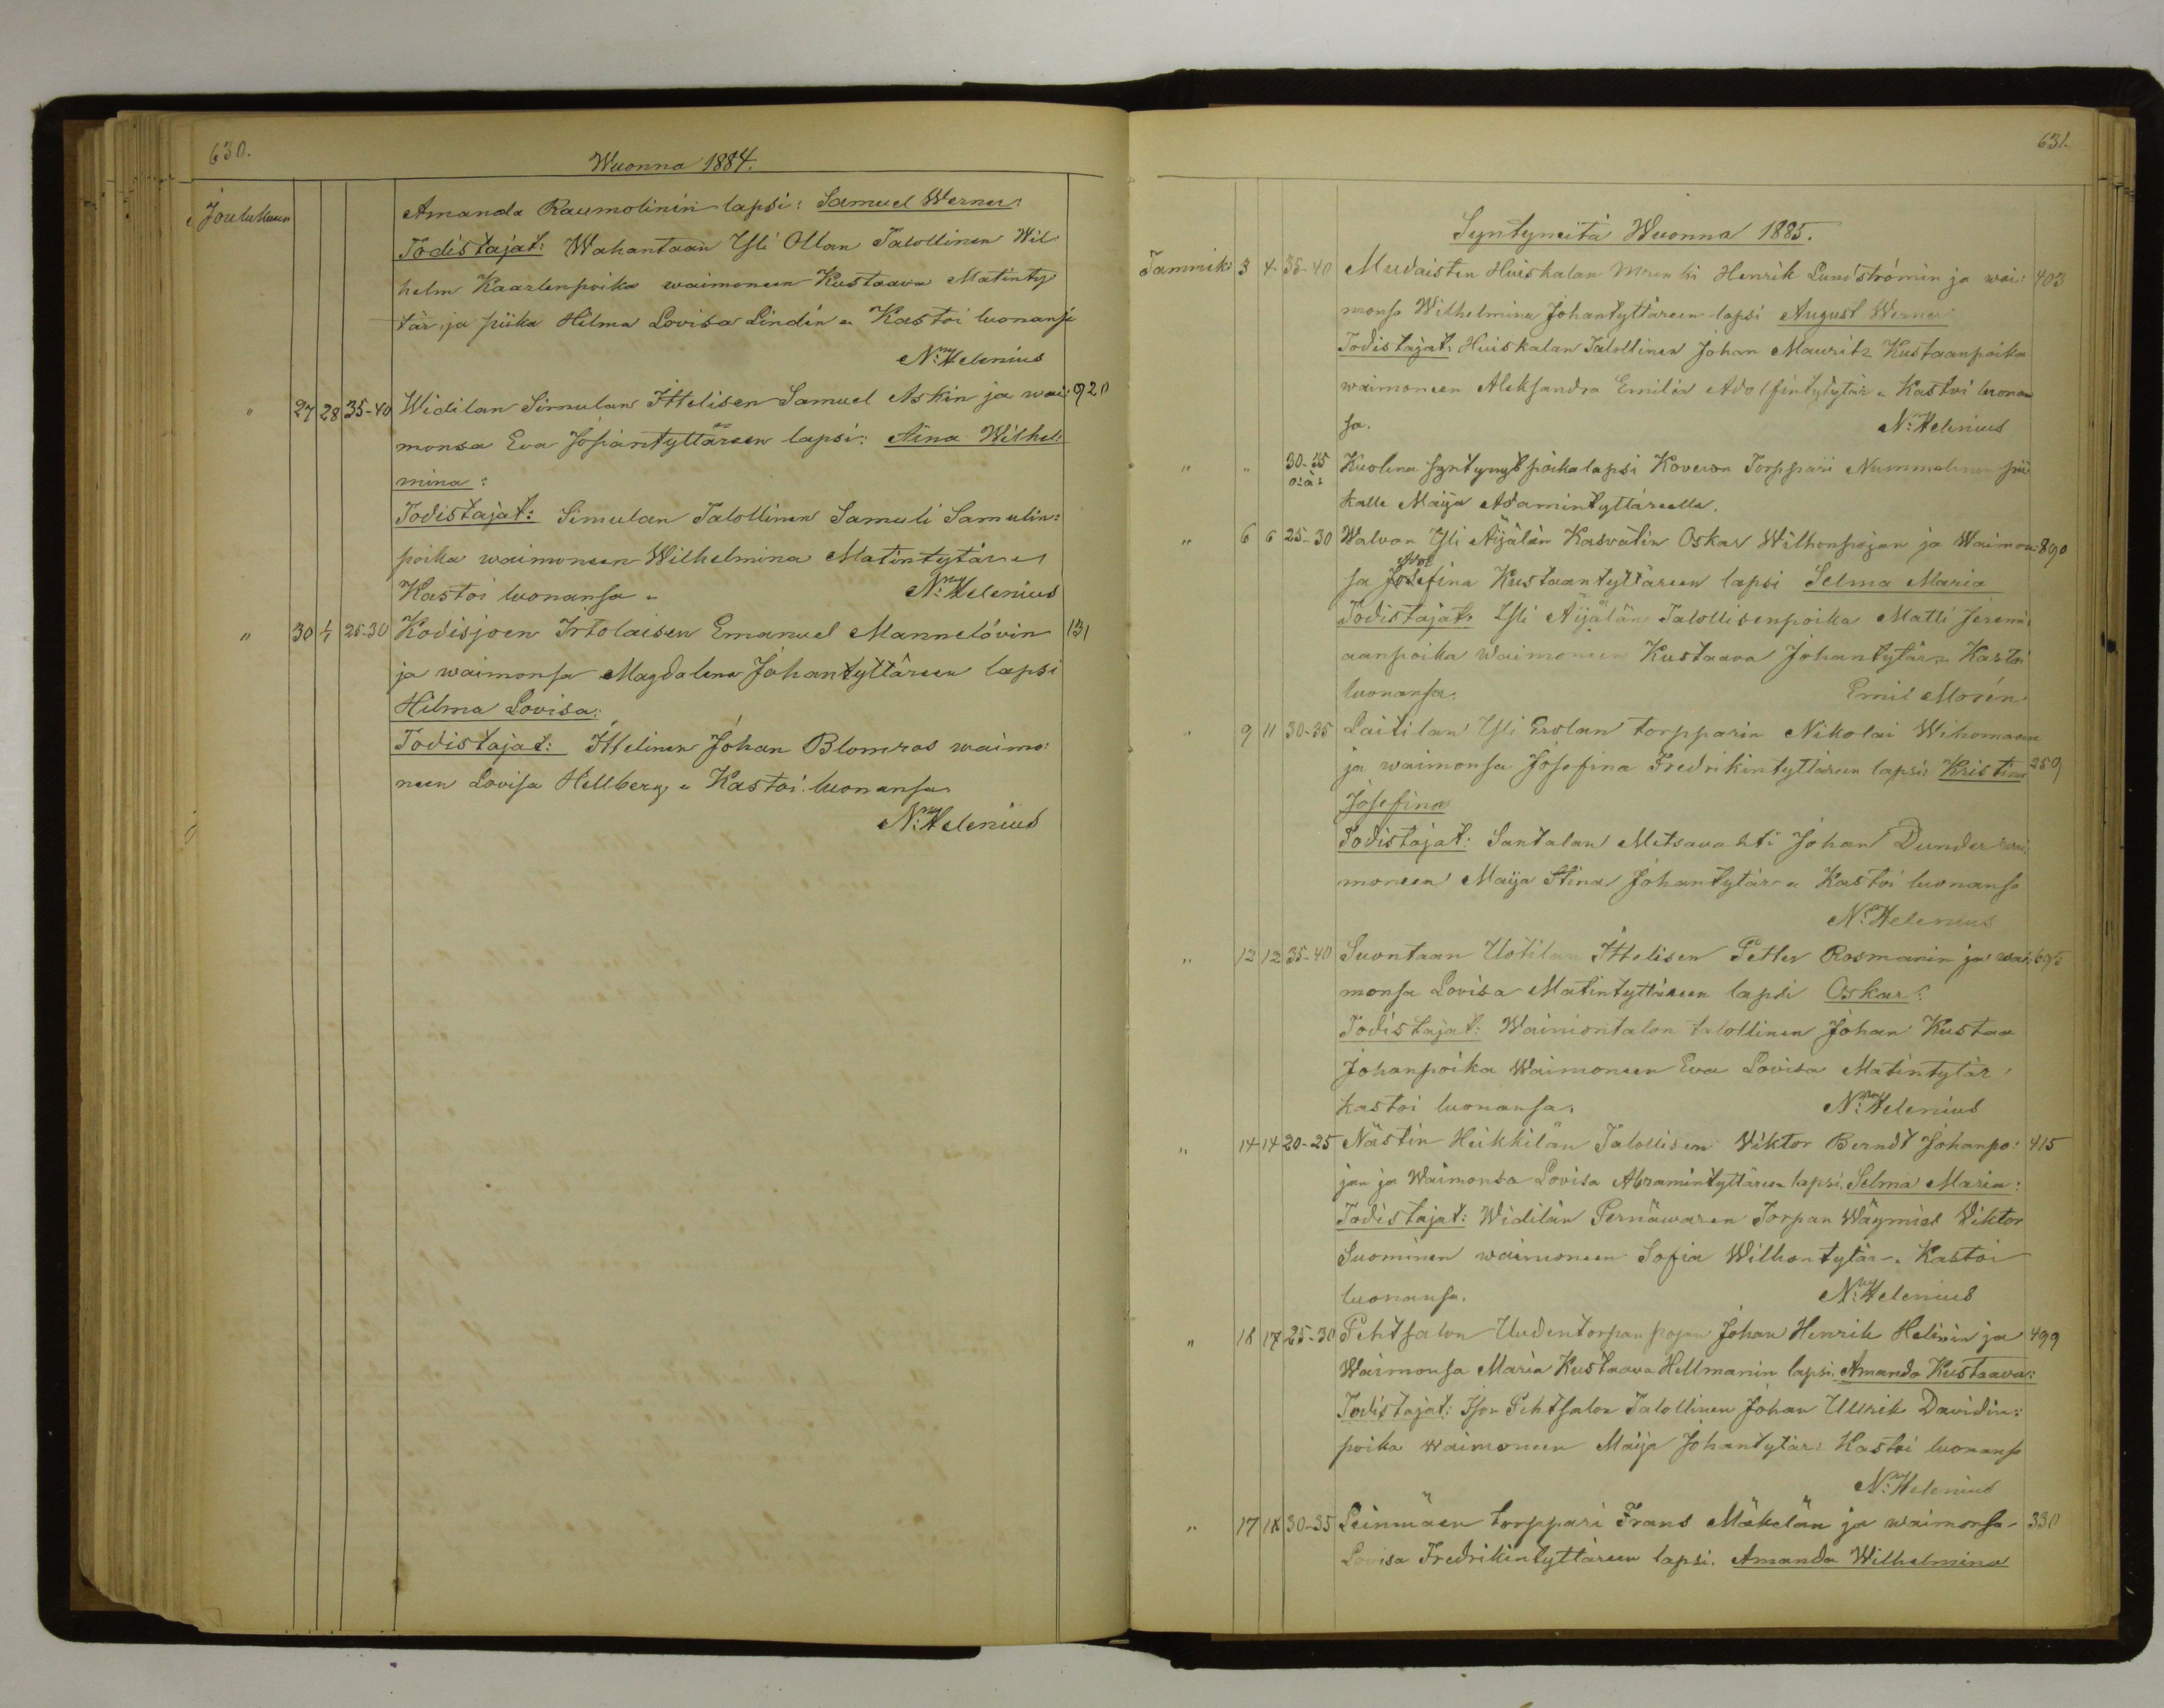 630.
Wuonna 1884.
Joulukuun
Amanda Raumolinin lapsi: Samuel Werner
Todistajat: Wahantaan Yli Ollan Talollinen Wil
helm Kaarlenpoika waimoneen Kustaava Matinty
tär, ja piika Hilma Lovisa Lindén „ Kastoi luonansa
N: Helenius
" 27 28 35-40 Widilan Simulan Ittelisen Samuel Askin ja wai: 920
monsa Eva Josiantyttären lapsi: Aina Wilhel:
mina:
Todistajat: Simulan Talollinen Samuli Samulin:
poika waimoneen Wilhelmina Matintytär
Kastoi luonansa „ N: Helenius
" 30 25-30 Kodisjoen Irtolaisen Emanuel Mannelövin 131
ja waimonsa Magdalena Johantyttären lapsi
Hilma Lovisa:
Todistajat: Ittelinen Johan Blomroos waimo:
neen Lovisa Hellberg „ Kastoi luonansa
N: Helenius
631.
Syntyneitä Wuonna 1885.
Tammik: 3 4 35-40 Mudaisten Huiskalan Henrik Lundströmin ja wai: 403
monsa Wilhelmina Johantyttäreen lapsi August Werner
Todistajat: Huiskalan Talollinen Johan Mauritz Kustaanpoika
waimoneen Aleksandra Emilia Adolfintytär „ Kastoi luonan
sa. N: Helenius
" " 30-35 Kuolena syntynyt poikalapsi Koveron Torppari Nummelinin pii
o: ä: kalle Maija Adamintyttärelle.
" 6 6 25-30 Walvon Yli Äijälän Kasvatin Oskar Wilhonpojan ja Waimon: 890
sa Josefina Kustaantyttäreen lapsi Selma Maria
Todistajat: Yli Äijälän Talollisenpoika Matti Jeremi
aanpoika Waimoneen Kustaava Johantytär „ Kastoi
luonansa. Emil Morén
" 9 11 30-35 Laitilan Yli Erolan torpparin Nikolai Wihomaan
ja waimonsa Josefina Fredrikintyttäreen lapsi: Kristina 259
Josefina
Todistajat: Santalan Metsavahti Johan Dunder wai
moneen Maija Stina Johantytär „ Kastoi luonansa
N: Helenius
" 12 12 35-40 Suontaan Uotilan Ittelisen Petter Rosmanin ja wai: 695
monsa Lovisa Matintyttäreen lapsi Oskar:
Todistajat: Wainiontalon talollinen Johan Kustaa
Johanpoika Waimoneen Eva Lovisa Matintytär
kastoi luonansa. N: Helenius
" 14 14 20-25 Nästin Heikkilän Talollisen Viktor Berndt Johanpo: 415
jan ja Waimonsa Lovisa Abramintyttäreen lapsi. Selma Maria:
Todistajat: Widilän Pernäwaren Torpan Wäymies Viktor
Suominen waimoneen Sofia Wilhontytär „ Kastoi
luonansa. N: Helenius
" 16 17 25-30 Pehtsalon Uudentorpan pojan Johan Henrik Helinin ja 499
Waimonsa Maria Kustaava Hellmanin lapsi. Amanda Kustaava:
Todistajat: Ison Pehtsalon Talollinen Johan Ullrik Davidin:
poika waimoneen Maija Johantytär: Kastoi luonansa
N: Helenius
" 17 18 30-35 Leinmäen torppari Frans Mäkelän ja waimonsa 330
Lovisa Fredrikintyttäreen lapsi. Amanda Wilhelmina